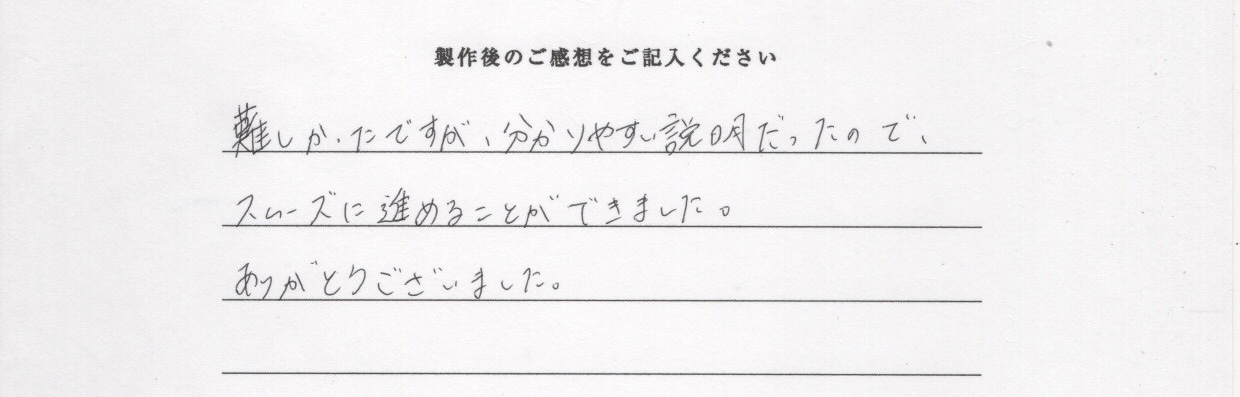 製作後のご感想をご記入ください
難しかったですが、分かりやすい説明だったので、
スムーズに進めることができました。
ありがとうございました。